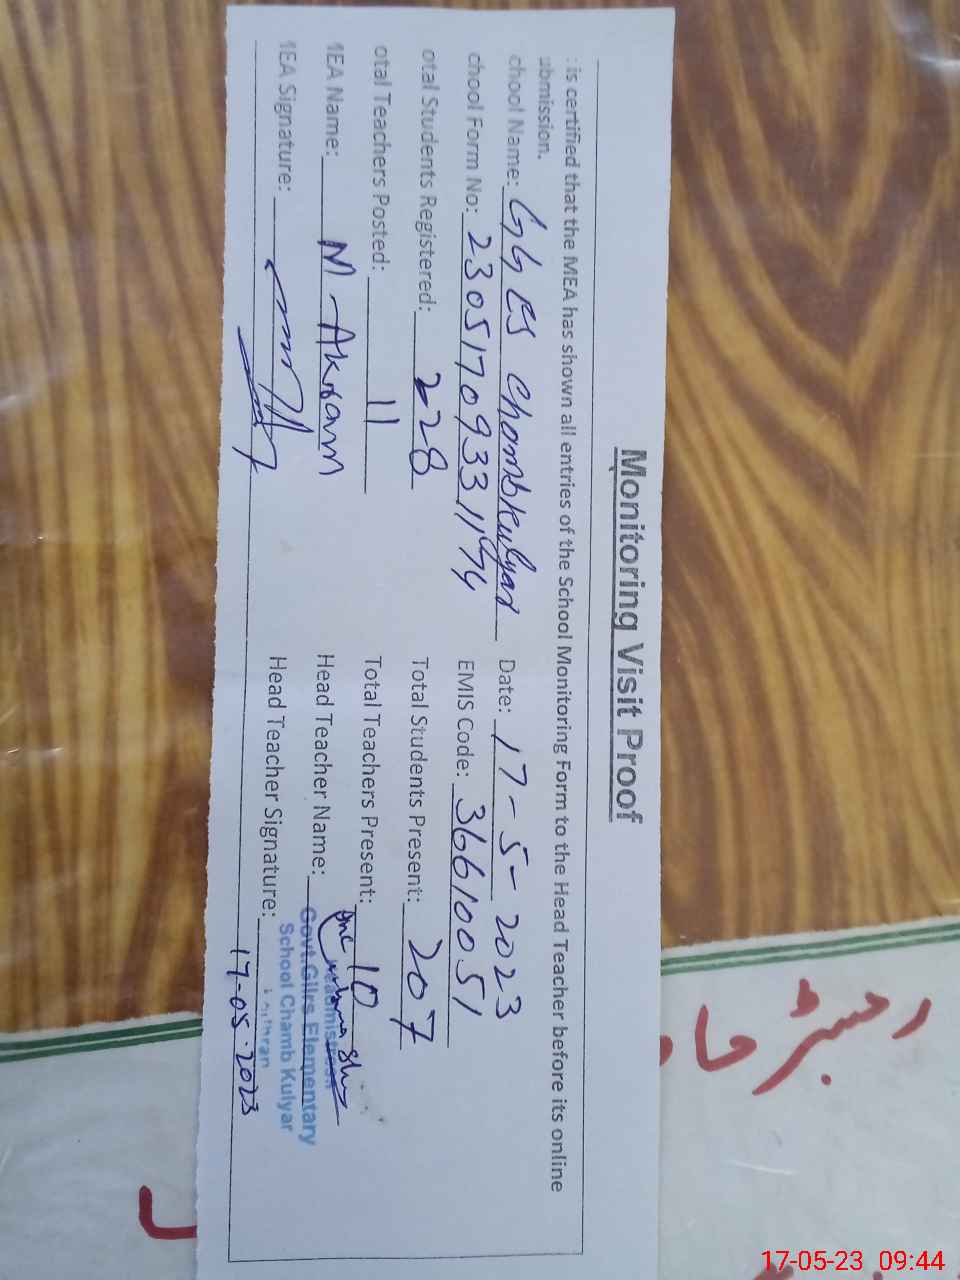 Monitoring Visit Proof
: is certified that the MEA has shown all entries of the School Monitoring Form to the Head Teacher before its online
ubmission.
chool Name: GGES Chambkulyar Date: 17-5-2023
chool Form No: EMIS Code: 36610051
otal Students Registered: 228 Total Students Present: 207
otal Teachers Posted: 11 Total Teachers Present: 10
1EA Name: M-Akram Head Teacher Name:
1EA Signature: Head Teacher Signature:
Headmistress
Govt.Gilrs Elementary
School Chamb Kulyar
17-05-2023
رجسٹر
17-05-23 09:44